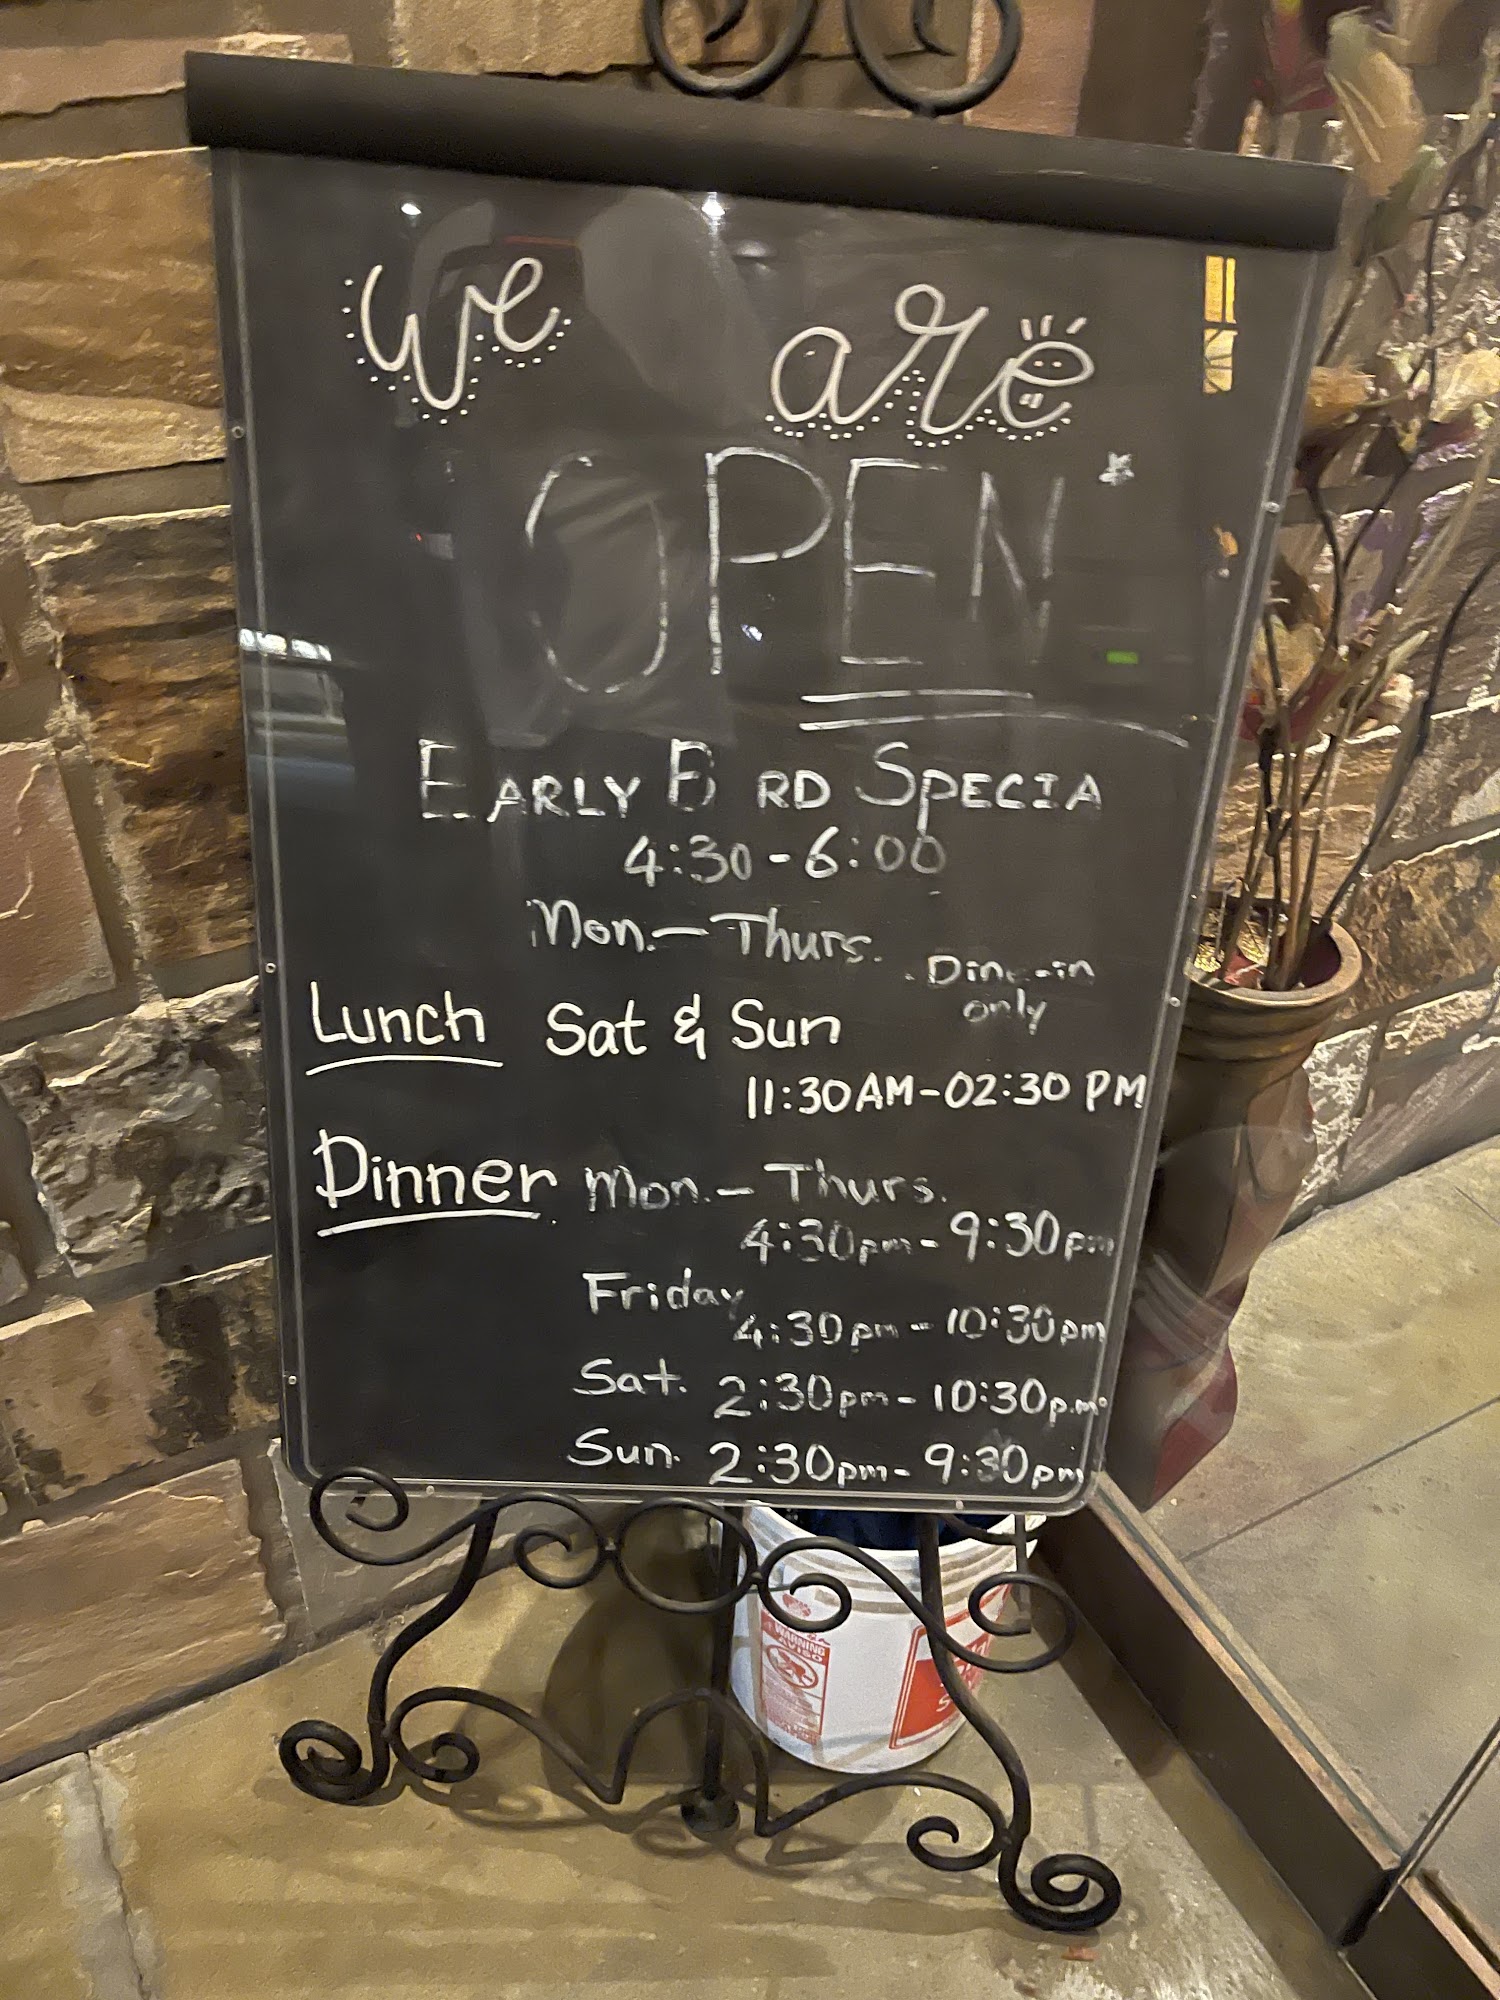 we are
OPEN*
EARLY B RD SPECIA
4:30-6:00
Mon.-Thurs.
Dine-in
only
Lunch Sat & Sun
11:30AM-02:30 PM
Dinner Mon.- Thurs.
4:30pm - 9:30pm
Friday
4:30pm - 10:30pm
Sat. 2:30pm - 10:30p.m.
Sun. 2:30pm - 9:30pm
WARNING
AVISO